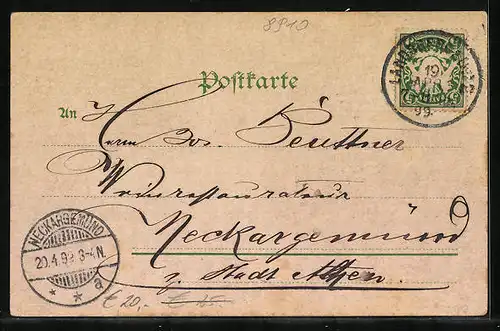 8910
Postkarte
19
APR
99.
An Herrn Jos. Beuttner
Weinrestaurateur
Neckargemünd
NECKARGEMÜND
20.4.99 3-4N.
* * a
z. Stadt Athen.
€ 20,-